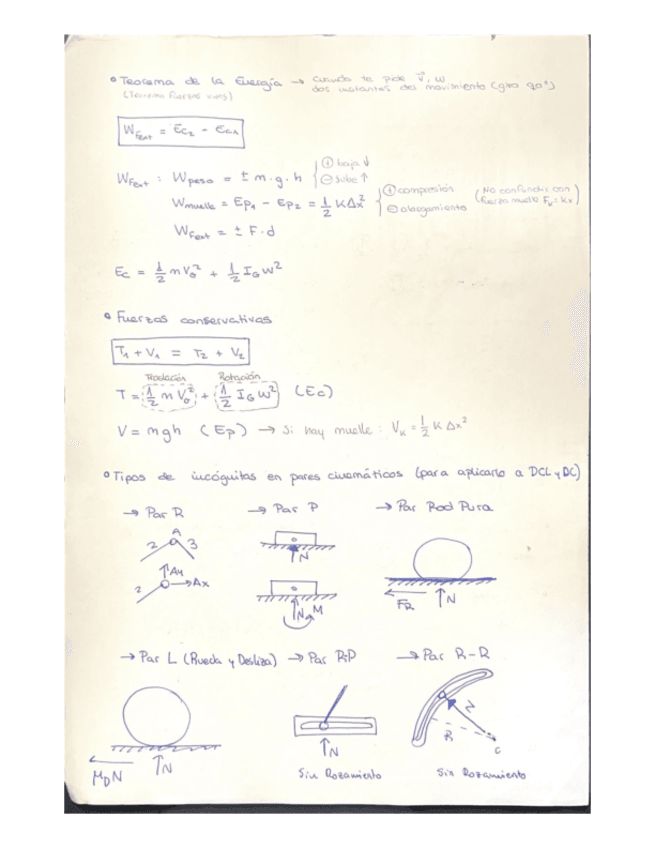 ° Teorema de la Energía → Cuando te pide v⃗, w
(Teorema fuerzas vivas) dos instantes del movimiento (giro 90°)
W_Fext = Ec₂ - Ec₁
W_Fext : W_peso = ± m·g·h { ⊕ baja ↓
⊖ sube ↑
W_muelle = Ep₁ - Ep₂ = 1/2 K Δx² { ⊕ compresión
⊖ alargamiento
(No confundir con
fuerza muelle F_k = Kx)
W_Fext = ± F·d
Ec = 1/2 m V_G² + 1/2 I_G w²
° Fuerzas conservativas
T₁ + V₁ = T₂ + V₂
Traslación Rotación
T = 1/2 m V_G² + 1/2 I_G w² (Ec)
V = mgh (Ep) → Si hay muelle: V_k = 1/2 K Δx²
° Tipos de incógnitas en pares cinemáticos (para aplicarlo a DCL y DC)
→ Par R → Par P → Par Rod Pura
A
2 3
N
Ay
2 Ax
N M
F_R N
→ Par L (Rueda y Desliza) → Par RP → Par R-R
N
R
C
μ_D N N
N
Sin Rozamiento Sin Rozamiento